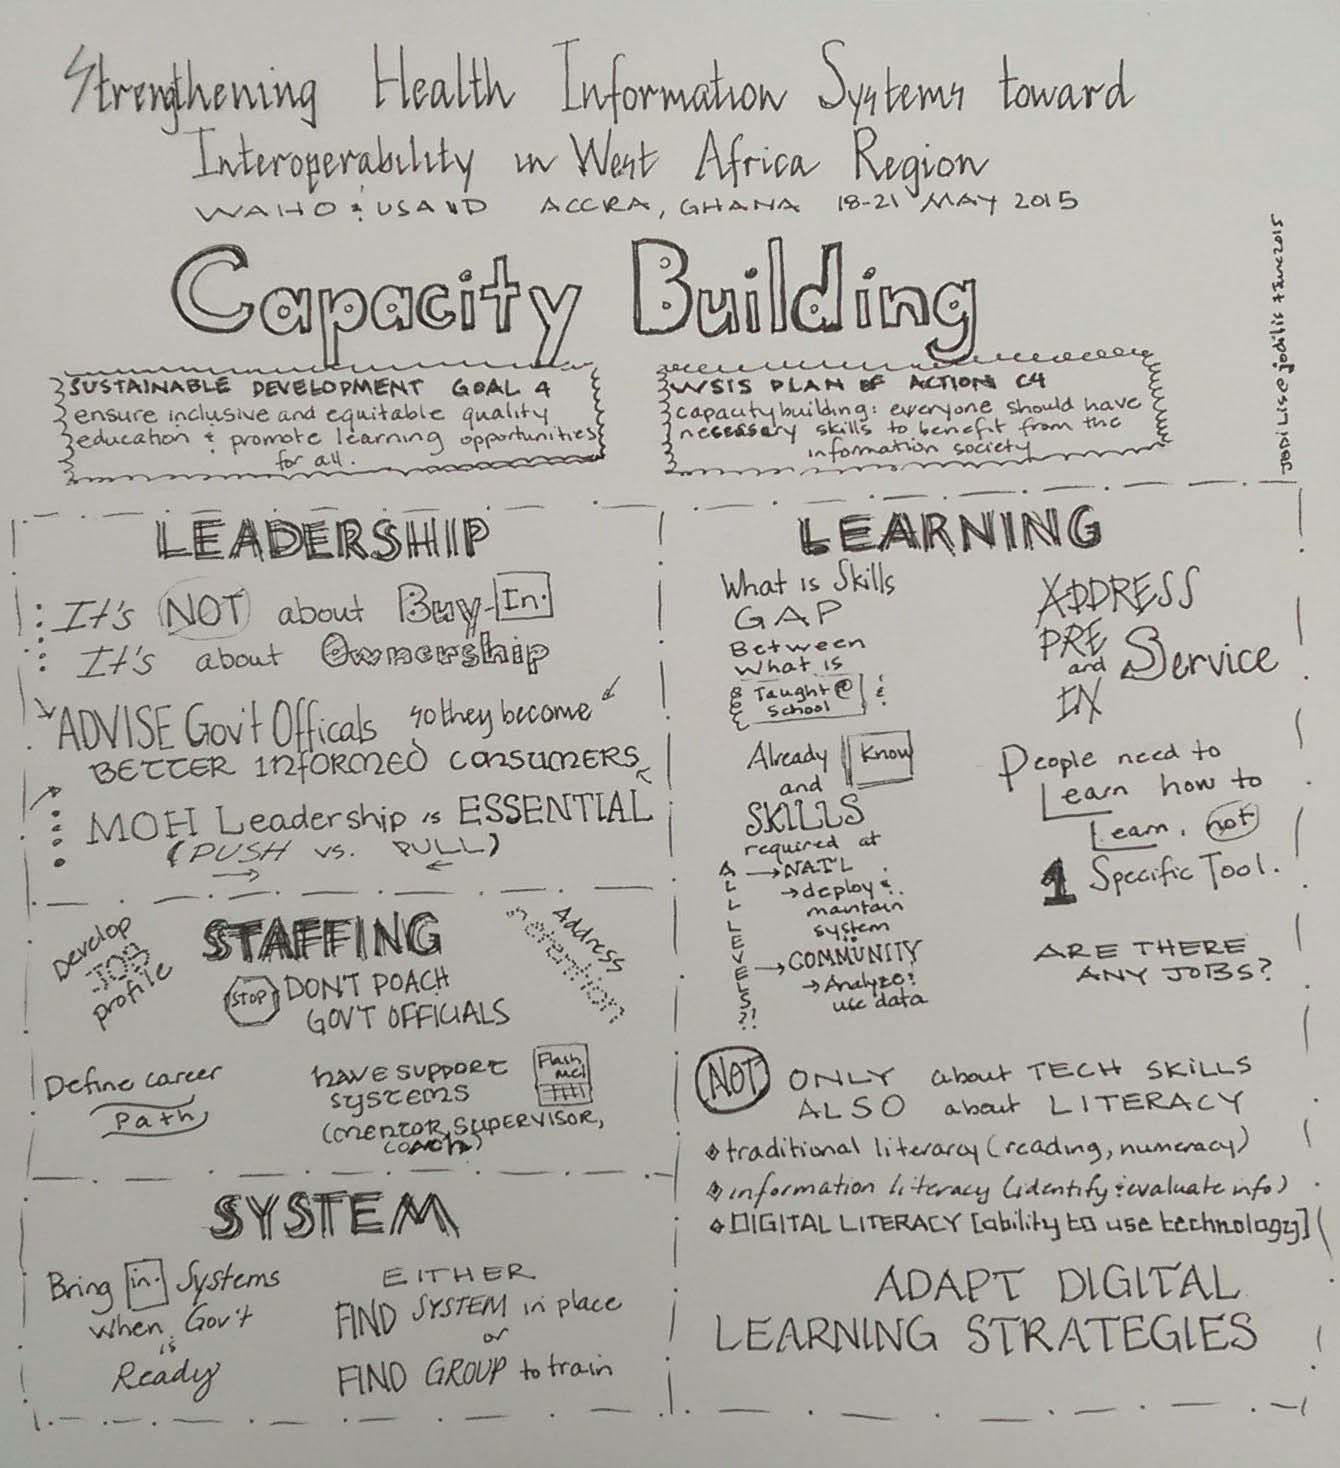 Strengthening Health Information Systems toward
Interoperability in West Africa Region
WAHO & USAID ACCRA, GHANA 18-21 MAY 2015
JODI LISE jodilis June 2015
Capacity Building
SUSTAINABLE DEVELOPMENT GOAL 4
ensure inclusive and equitable quality
education & promote learning opportunities
for all.
WSIS PLAN OF ACTION C4
capacity building: everyone should have
necessary skills to benefit from the
information society
LEADERSHIP
It's NOT about Buy-In.
It's about Ownership
ADVISE Gov't Officals so they become
BETTER INFORMED CONSUMERS
MOH Leadership is ESSENTIAL
(PUSH vs. PULL)
STAFFING
Develop
JOB
profile
Address
retention
STOP DON'T POACH
GOV'T OFFICIALS
Define career
Path
HAVE SUPPORT
SYSTEMS
(MENTOR, SUPERVISOR,
COACH)
Flash
SYSTEM
Bring in. Systems
when Gov't
is
Ready
EITHER
FIND SYSTEM in place
or
FIND GROUP to train
LEARNING
What is Skills
GAP
Between
What is
Taught @
School
&
Already Know
and
SKILLS
required at
ALL LEVELS?!
→ NAT'L
→ deploy &
maintain
system
→ COMMUNITY
→ Analyze &
use data
ADDRESS
PRE
and Service
IN
People need to
Learn how to
Learn, not
1 Specific Tool.
ARE THERE
ANY JOBS?
NOT ONLY about TECH SKILLS
ALSO about LITERACY
traditional literarcy (reading, numeracy)
information literacy (identify & evaluate info)
DIGITAL LITERACY [ability to use technology]
ADAPT DIGITAL
LEARNING STRATEGIES